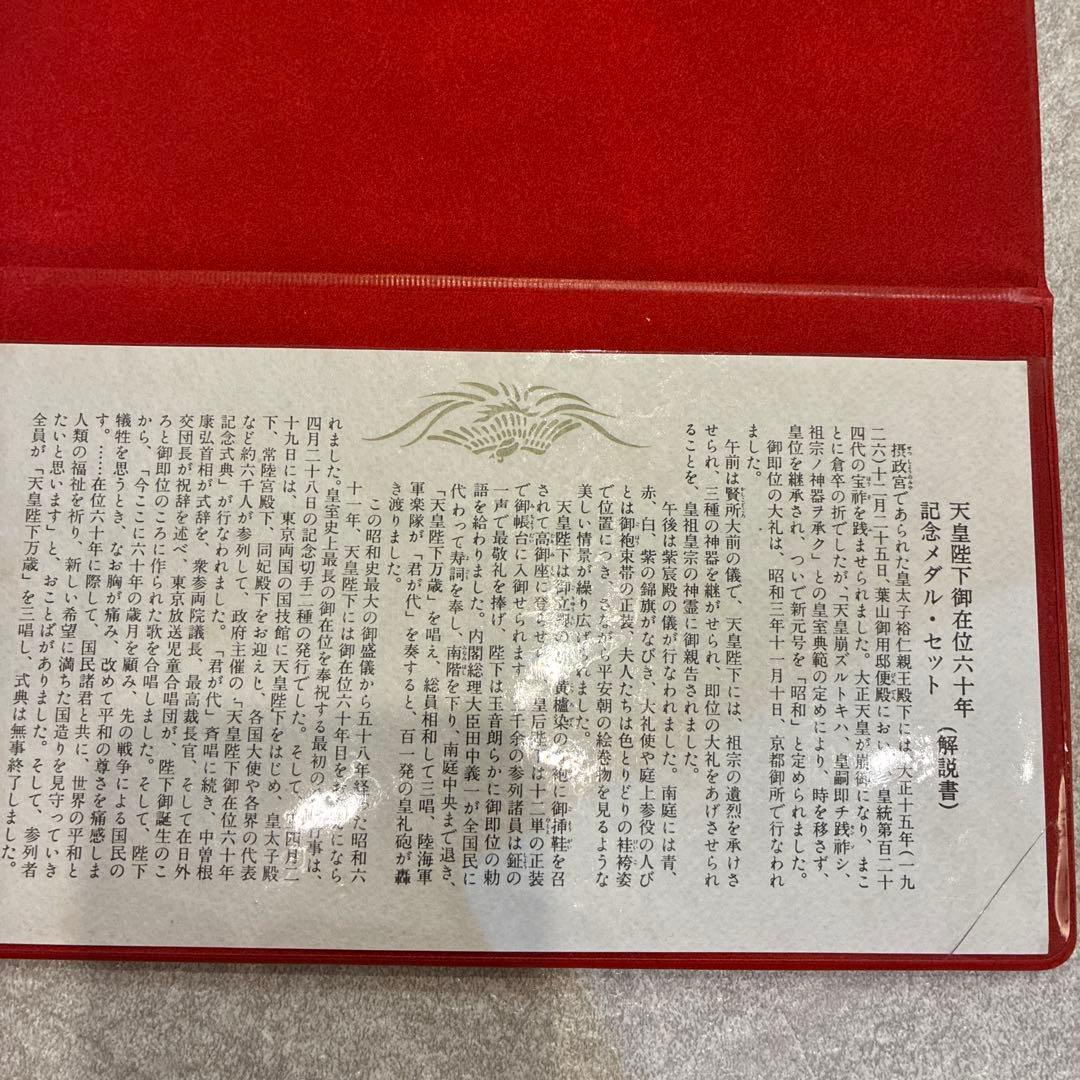 天皇陛下御在位六十年
記念メダル・セット （解説書）
摂政宮であられた皇太子裕仁親王殿下には、大正十五年（一九
二六）十二月二十五日、葉山御用邸便殿におい 皇統第百二十
四代の宝祚を践ませられました。大正天皇が崩御になり まこ
とに倉卒の折でしたが、「天皇崩ズルトキハ、皇嗣即チ践祚シ、
祖宗ノ神器ヲ承ク」との皇室典範の定めにより、時を移さず、
皇位を継承され、ついで新元号を「昭和」と定められました。
御即位の大礼は、昭和三年十一月十日、京都御所で行なわれ
ました。
午前は賢所大前の儀で、天皇陛下には、祖宗の遺烈を承けさ
せられ、三種の神器を継がせられ、即位の大礼をあげさせられ
ることを、皇祖皇宗の神霊に御親告されました。
午後は紫宸殿の儀が行なわれました。南庭には青、
赤、白、紫の錦旗がなびき、大礼使や庭上参役の人び
とは御袍束帯の正装、夫人たちは色とりどりの袿袴姿
で位置につき、さながら平安朝の絵巻物を見るような
美しい情景が繰り広げられました。
天皇陛下は御立 の 黄櫨染の 袍に御挿鞋を召
されて高御座に登らせ 皇后陛 は十二単の正装
で御帳台に入御せられます 二千余の参列諸員は鉦の
一声で最敬礼を捧げ、陛下は玉音朗らかに御即位の勅
語を給わりました。内閣総理大臣田中義一が全国民に
代わって寿詞を奏し、南階を下り、南庭中央まで退き、
「天皇陛下万歳」を唱え、総員相和して三唱、陸海軍
軍楽隊が「君が代」を奏すると、百一発の皇礼砲が轟
き渡りました。
この昭和史最大の御盛儀から五十八年経 た昭和六
十一年、天皇陛下には御在位六十年日をお にな
れました。皇室史上最長の御在位を奉祝する最初の 行事は、
四月二十八日の記念切手二種の発行でした。そして 四月二
十九日には、東京両国の国技館に天皇陛下をはじめ、皇太子殿
下、常陸宮殿下、同妃殿下をお迎えし、各国大使や各界の代表
など約六千人が参列して、政府主催の「天皇陛下御在位六十年
記念式典」が行なわれました。「君が代」斉唱に続き、中曽根
康弘首相が式辞を、衆参両院議長、最高裁長官、そして在日外
交団長が祝辞を述べ、東京放送児童合唱団が、陛下御誕生のこ
ろと御即位のころに作られた歌を合唱しました。そして、陛下
から、「今ここに六十年の歳月を顧み、先の戦争による国民の
犠牲を思うとき、なお胸が痛み、改めて平和の尊さを痛感しま
す。……在位六十年に際して、国民諸君と共に、世界の平和と
人類の福祉を祈り、新しい希望に満ちた国造りを見守っていき
たいと思います」と、おことばがありました。そして、参列者
全員が「天皇陛下万歳」を三唱し、式典は無事終了しました。